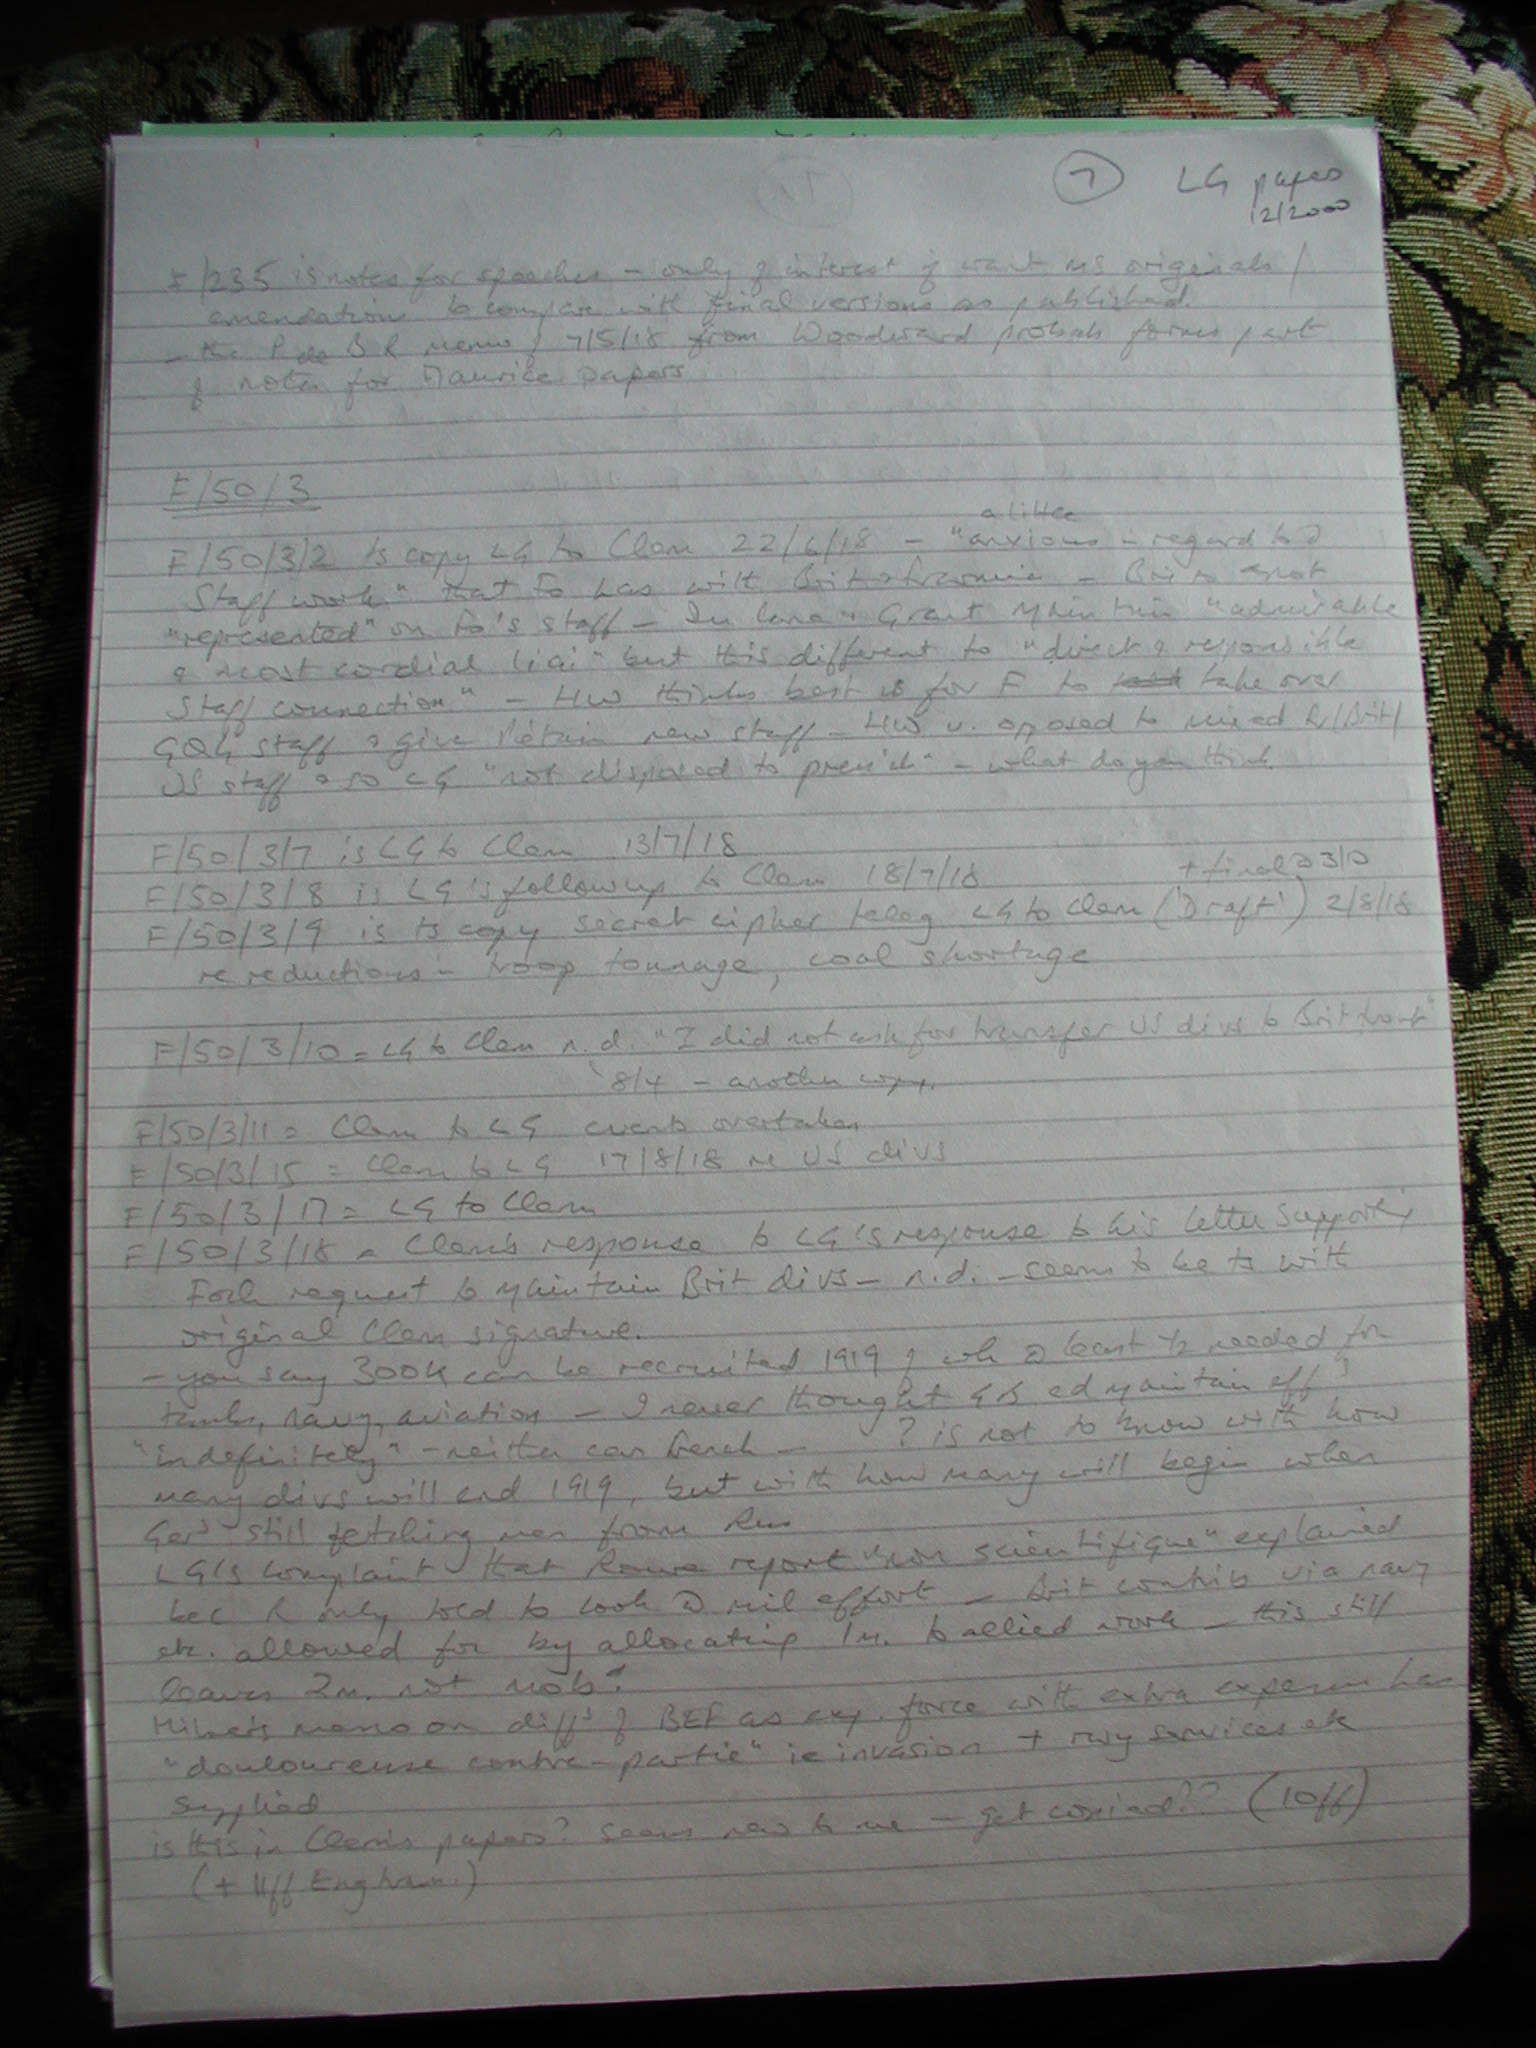 7 LG papers
12/2000
F/235 is notes for speeches - only of interest if want MS originals /
emendations to compare with final versions as published.
- the P de B R memo of 7/5/18 from Woodward probab forms part
of notes for Maurice papers
F/50/3
a little
F/50/3/2 ts copy LG to Clem 22/6/18 - "anxious in regard to
Staff work" that Fo has with Brit - Brit not
"represented" on Fo's staff - Du Cane & Grant maintain "admirable
& most cordial liai" but this different to "direct & responsible
Staff connection" - HW thinks best is for F to take over
GQG staff & give Pétain new staff - HW v. opposed to mixed Fr/Brit/
US staff & so LG "not disposed to press it" - what do you think
F/50/3/7 is LG to Clem 13/7/18
F/50/3/8 is LG's follow up to Clem 18/7/18
+ final @ 3/10
F/50/3/9 is ts copy secret cipher teleg LG to Clem ('Draft') 2/8/18
re reductions in troop tonnage, coal shortage
F/50/3/10 = LG to Clem n.d. "I did not ask for transfer US divs to Brit front"
8/4 - another copy.
F/50/3/11 = Clem to LG events overtaken
F/50/3/15 = Clem to LG 17/8/18 re US divs
F/50/3/17 = LG to Clem
F/50/3/18 = Clem's response to LG's response to his letter supporting
Foch request to maintain Brit divs - n.d. - seems to be ts with
original Clem signature.
- you say 300K can be recruited 1919 of wh @ least ½ needed for
tanks, navy, aviation - I never thought GB cd maintain eff
"indefinitely" - neither can French - ? is not to know with how
many divs will end 1919, but with how many will begin when
Gers still fetching men from Rus
LG's complaint that Roure report "non scientifique" explained
bec R only told to look @ mil effort - Brit contrib via navy
etc. allowed for by allocating 1m. to allied work - this still
leaves 2m. not mobd.
Milner's memo on diffs of BEF as exp. force with extra expenses has
"douloureuse contre-partie" ie invasion + rwy services etc
supplied
is this in Clem's papers? Seems new to me - get copied?? (10ff)
(+ 11ff Eng trans.)